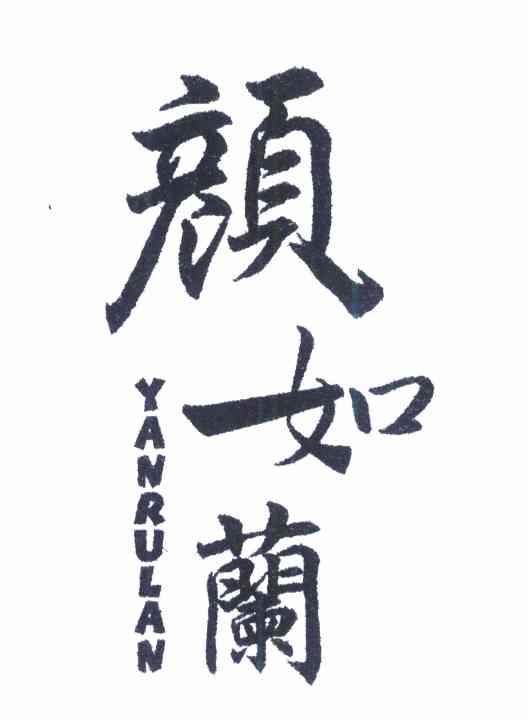 顔如蘭
YANRULAN